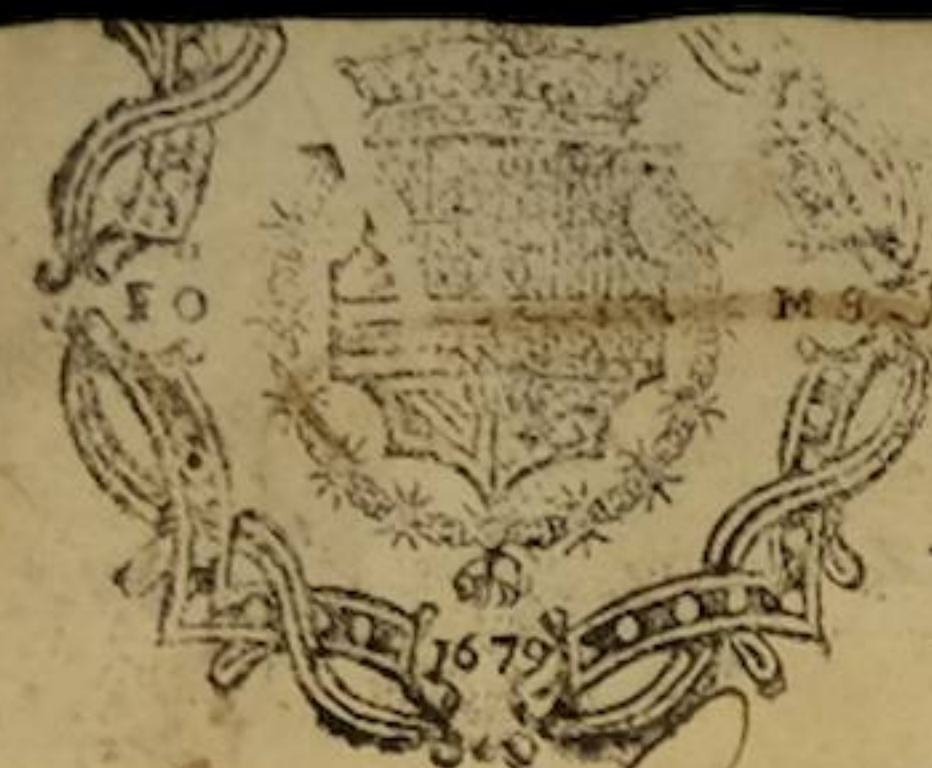 E O M S
1679